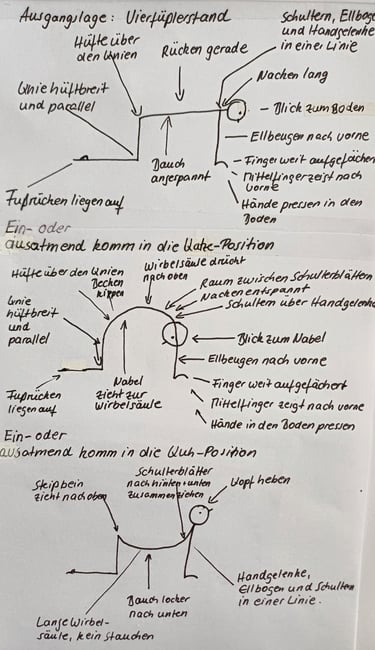 Ausgangslage: Vierfüßlerstand
Schultern, Ellbogen
und Handgelenke
in einer Linie
Hüfte über
den Knien
Rücken gerade
Nacken lang
Knie hüftbreit
und parallel
Blick zum Boden
Ellbeugen nach vorne
Bauch
angespannt
Finger weit aufgefächert
Mittelfinger zeigt nach
vorne
Hände pressen in den
Boden
Fußrücken liegen auf
Ein- oder
ausatmend komm in die Katze-Position
Hüfte über den Knien
Becken
kippen
Wirbelsäule drückt
nach oben
Raum zwischen Schulterblättern
Nacken entspannt
Schultern über Handgelenke
Knie
hüftbreit
und
parallel
Blick zum Nabel
Ellbeugen nach vorne
Fußrücken
liegen auf
Nabel
zieht zur
Wirbelsäule
Finger weit aufgefächert
Mittelfinger zeigt nach vorne
Hände in den Boden pressen
Ein- oder
ausatmend komm in die Kuh-Position
Steißbein
zieht nach oben
Schulterblätter
nach hinten + unten
zusammenziehen
Kopf heben
Handgelenke,
Ellbogen und Schultern
in einer Linie.
Bauch locker
nach unten
Lange Wirbel-
säule, kein Stauchen